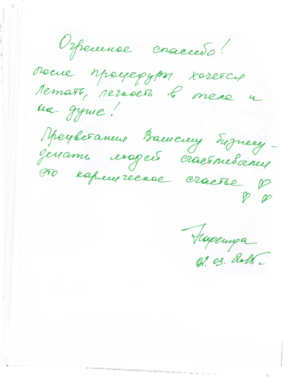 Огромное спасибо!
после процедуры хочется
летать, легкость в теле и
на душе!
Процветания Вашему бизнесу -
делать людей счастливыми
это кармическое счастье ♡
♡ ♡
02.03.2018г.